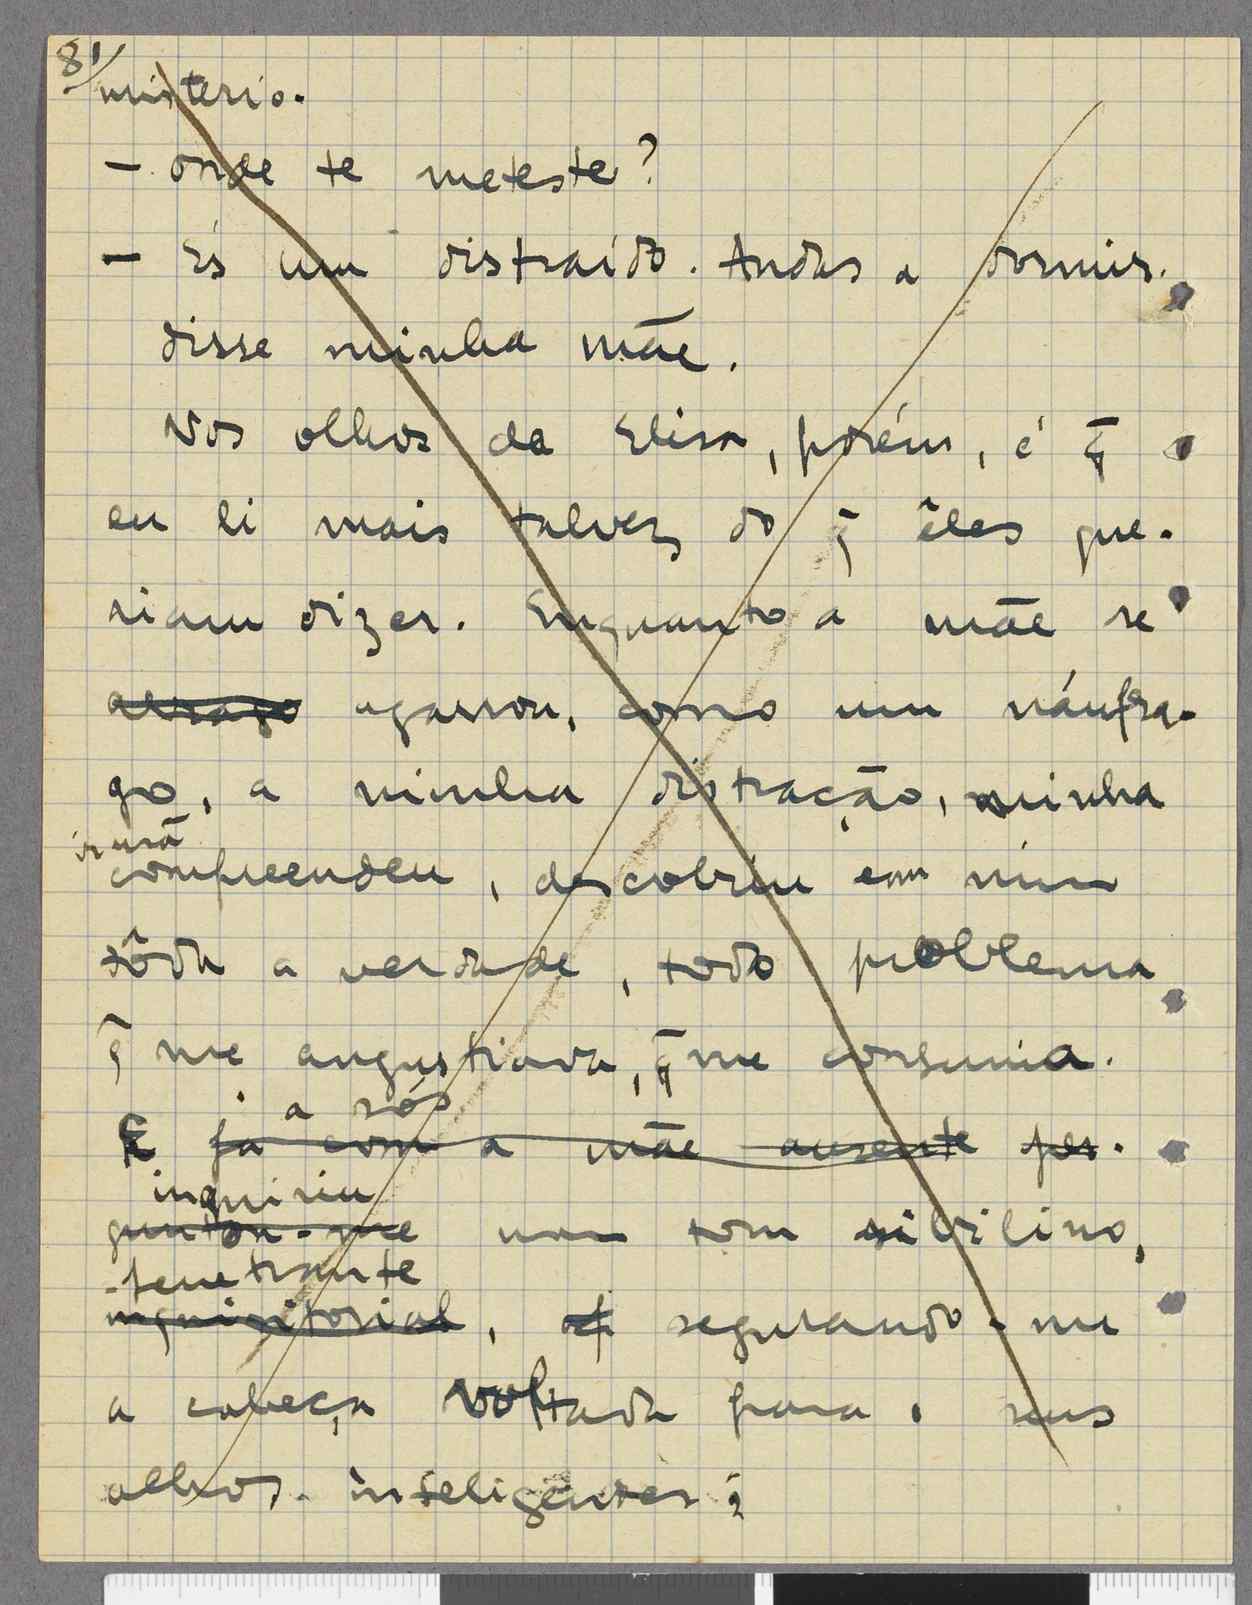 81/
misterio.
— onde te meteste?
— És um distraído. Andas a dormir.
disse minha mãe.
Nos olhos de Elisa, porém, é q̃
eu li mais talvez do q̃ êles que-
riam dizer. Enquanto a mãe se
agarrou, como um náufra-
go, a minha distração, minha
irmã
compreendeu, descobriu em mim
tôda a verdade, todo problema
q̃ me angustiava, q̃ me consumia.
a sós
E já com a mãe ausente per-
inquiriu
guntou-me num tom sibilino,
penetrante
inquisitorial, segurando-me
a cabeça voltada para seus
olhos inteligentes: